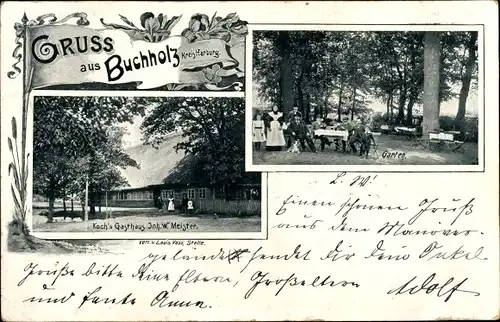 GRUSS
aus Buchholz
Kreis Harburg.
Garten.
Koch's Gasthaus, Inh. W. Meister.
Verl. v. Louis Voss, Stelle.
L. W!
Einen schönen Gruß
aus dem Manöver-
gelände sendet dir dein Onkel
Grüße bitte deine Eltern, Großeltern Adolf
und Tante Anna.